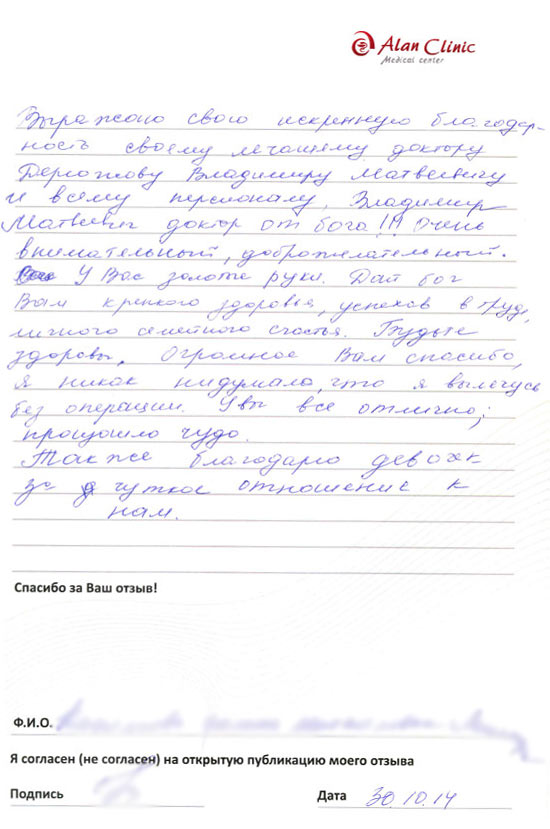 Alan Clinic
Medical center
Выражаю свою искреннюю благодар-
ность своему лечащему доктору
Владимиру Матвеевичу
и всему персоналу, Владимир
Матвеевич доктор от бога!!! Очень
внимательный, доброжелательный.
У Вас золотые руки. Дай бог
Вам крепкого здоровья, успехов в труде,
личного семейного счастья. Будьте
здоровы. Огромное Вам спасибо,
я никак нидумала, что я вылечусь
без операции. Увы все отлично;
произошло чудо.
Также благодарю девочек
за чуткое отношение к
нам.
Спасибо за Ваш отзыв!
Ф.И.О.
Я согласен (не согласен) на открытую публикацию моего отзыва
Подпись Дата 30.10.14